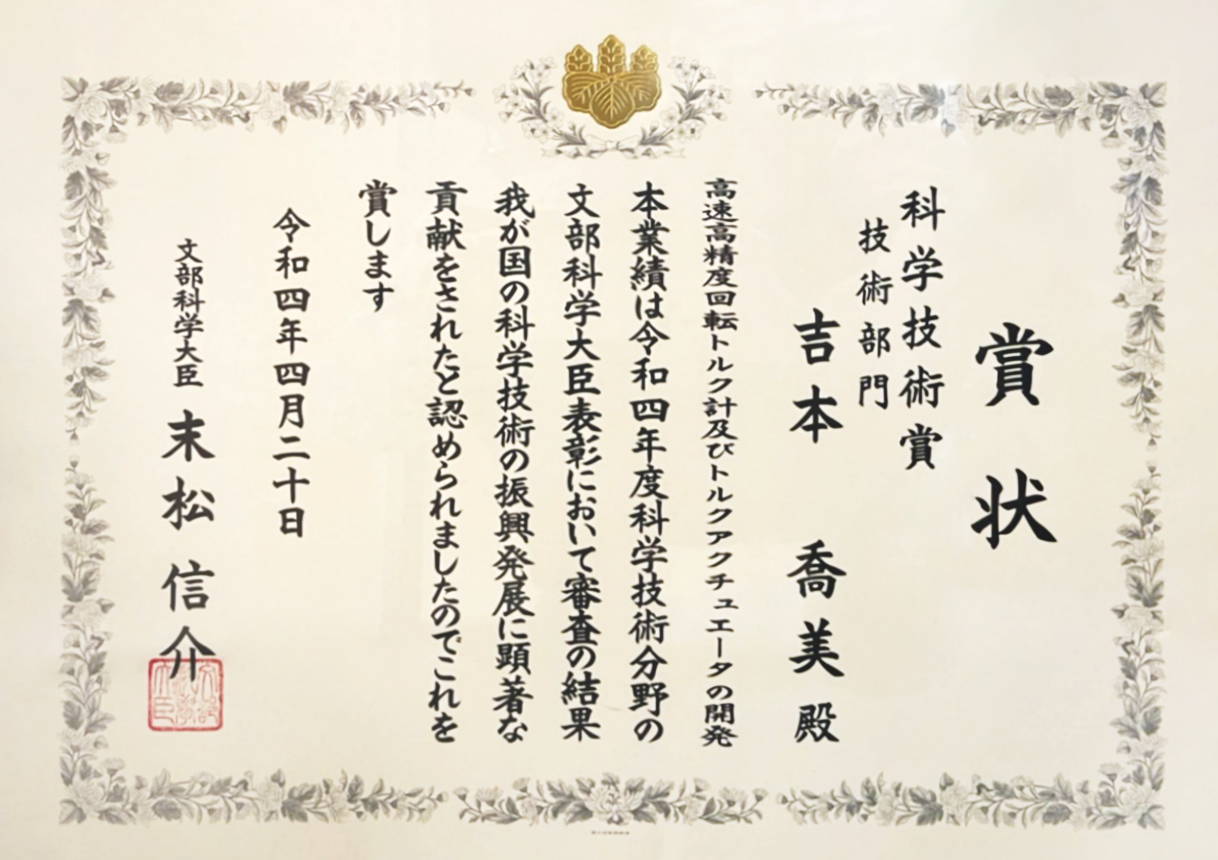 賞状
科学技術賞
技術部門
吉本 喬美殿
高速高精度回転トルク計及びトルクアクチュエータの開発
本業績は令和四年度科学技術分野の
文部科学大臣表彰において審査の結果
我が国の科学技術の振興発展に顕著な
貢献をされたと認められましたのでこれを
賞します
令和四年四月二十日
文部科学大臣 末松信介